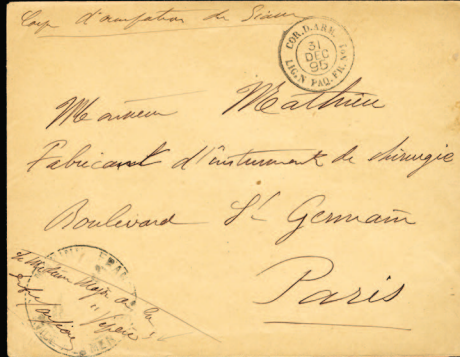 Corps d'occupation du Siam
COR. D. ARM.
31
DEC
95
LIG. N PAQ. FR. No 1
Monsieur Mathieu
Fabricant d'instrument de chirurgie
Boulevard St Germain
Paris
Le Médecin Major